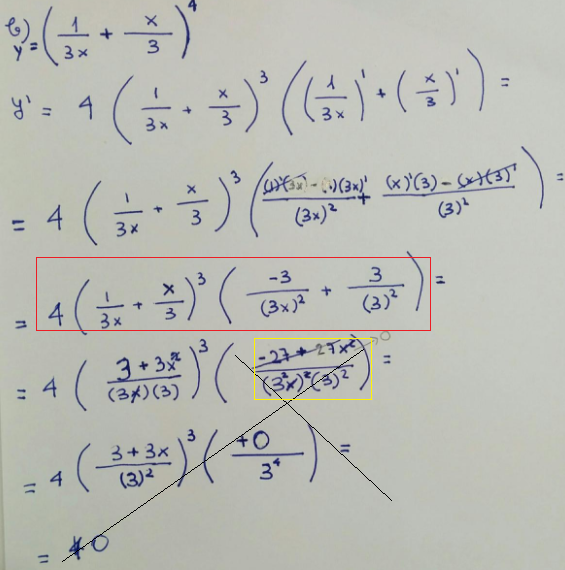 b)
y = (1/3x + x/3)^4
y' = 4 (1/3x + x/3)^3 ((1/3x)' + (x/3)') =
= 4 (1/3x + x/3)^3 (((1)'(3x) - (1)(3x)')/(3x)^2 + ((x)'(3) - (x)(3)')/(3)^2) =
= 4 (1/3x + x/3)^3 (-3/(3x)^2 + 3/(3)^2) =
= 4 ((3 + 3x^2)/((3x)(3)))^3 ((-27 + 27x^2)/((3x)^2(3)^2)) → 0 =
= 4 ((3 + 3x)/(3)^2)^3 (+0/3^4) =
= 0